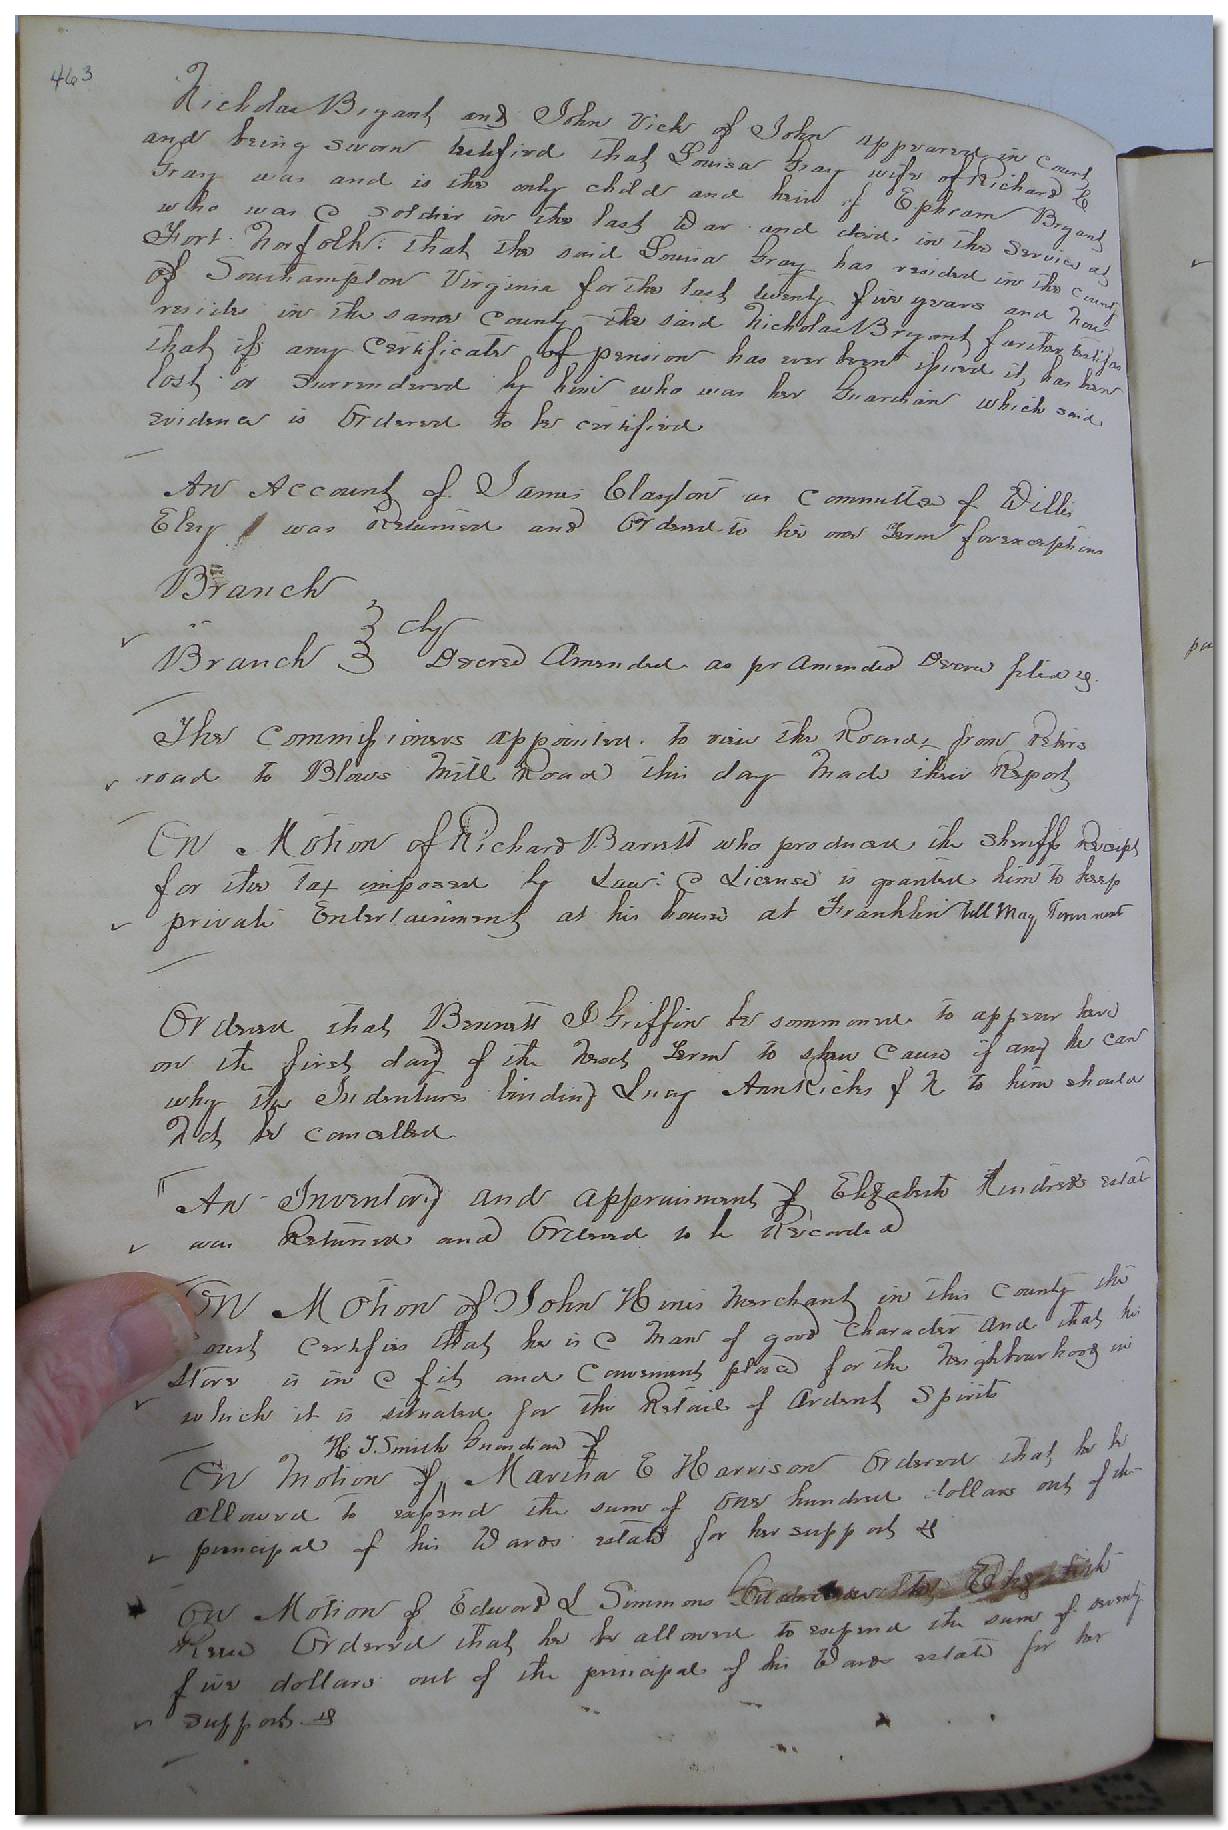 463
Nicholas Bryant and John Vick of John appeared in Court
and being sworn testified that Louisa Gray wife of Richard E
Gray was and is the only child and heir of Ephram Bryant
who was a soldier in the last War and died in the Service at
Fort Norfolk: that the said Louisa Gray has resided in the County
of Southampton Virginia for the last twenty five years and now
resides in the same County the said Nicholas Bryant further testifies
that if any Certificate of pension has ever been issued it has been
lost or surrendered by him who was her Guardian which said
evidence is Ordered to be certified
An Account of James Clayton as Committee of Willis
Eley was Returned and Ordered to lie one Term for exceptions
Branch
vs
Branch } Chy
Decree Amended as pr Amended Decree filed
The Commissioners appointed to view the Road from
road to Blows Mill Road this day Made their Report
On Motion of Richard Barrett who produced the Sheriffs Receipt
for the tax imposed by Law a License is granted him to keep
private Entertainment at his house at Franklin till May Term next
Ordered that Bennett J Griffin be sommoned to appear here
on the first day of the Next Term to shew Cause if any he can
why the Indentures binding Lucy Ann Ricks f N to him should
Not be cancelled
An Inventory and appraisment of Elizabeth Kindreds estate
was Returned and Ordered to be Recorded
On Motion of John Hines Merchant in this County the
Court Certifies that he is a Man of good Character and that his
Store is in a fit and Convenient place for the Neighbourhood in
which it is situated for the Retail of Ardent Spirits
H. J. Smith Guardian of
On Motion of Martha E Harrison Ordered that he be
allowed to expend the sum of One hundred dollars out of the
principal of his Wards estate for her support
On Motion of Edward L Simmons Guardian to Elizabeth
Ordered that he be allowed to expend the sum of twenty
five dollars out of the principal of his Wards estate for her
support